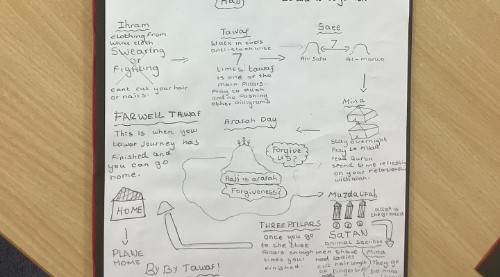 Hajj
Ihram
clothing from
white cloth
Swearing
or
Fighting
cant cut your hair
or nails.
Tawaf
Walk in circles
anti-clockwise
7
times tawaf
is one of the
main pillars
Pray to Allah
and no pushing
other pilgrims
Saee
7
Al-Safa
Al-marwa
Mina
stay overnight
Pray to Allah
read Quran
spend time reflecting
on your relationship
with Allah.
Arafah Day
Forgive
us?
Hajj is arafah
Forgiveness?
FARWELL TAWAF
This is when you
journey has
finished and
you can go
home.
HOME
PLANE
HOME
Muzdalifah
SATAN
animal sacrifice
THREE PILARS
Once you go
to the three
Pillars
times your
finished
men shave
and ladies
cut
Mina
they go
By By Tawaf!